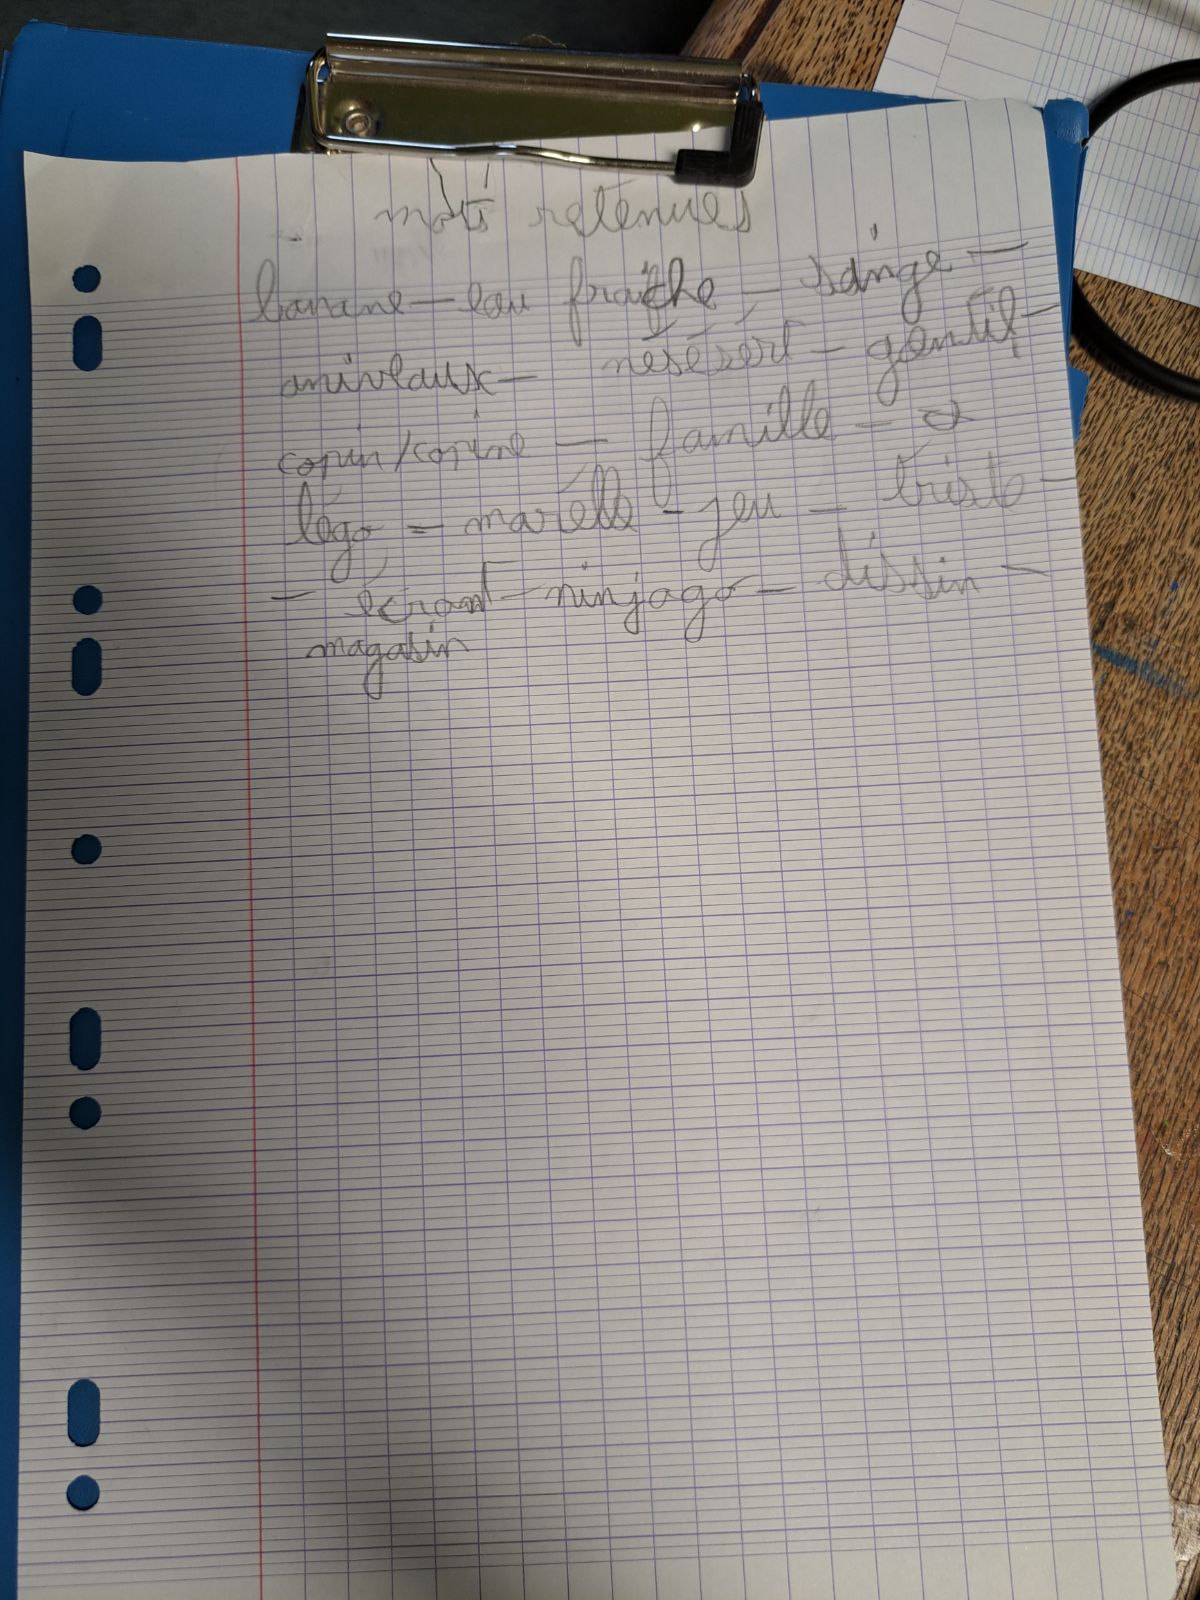 mots retenues
banane - eau fraîche - singe -
animaux - désert - gentil -
copin/copine - famille -
légo = marelle - jeu - triste -
- écrant - ninjago - dissin -
magasin